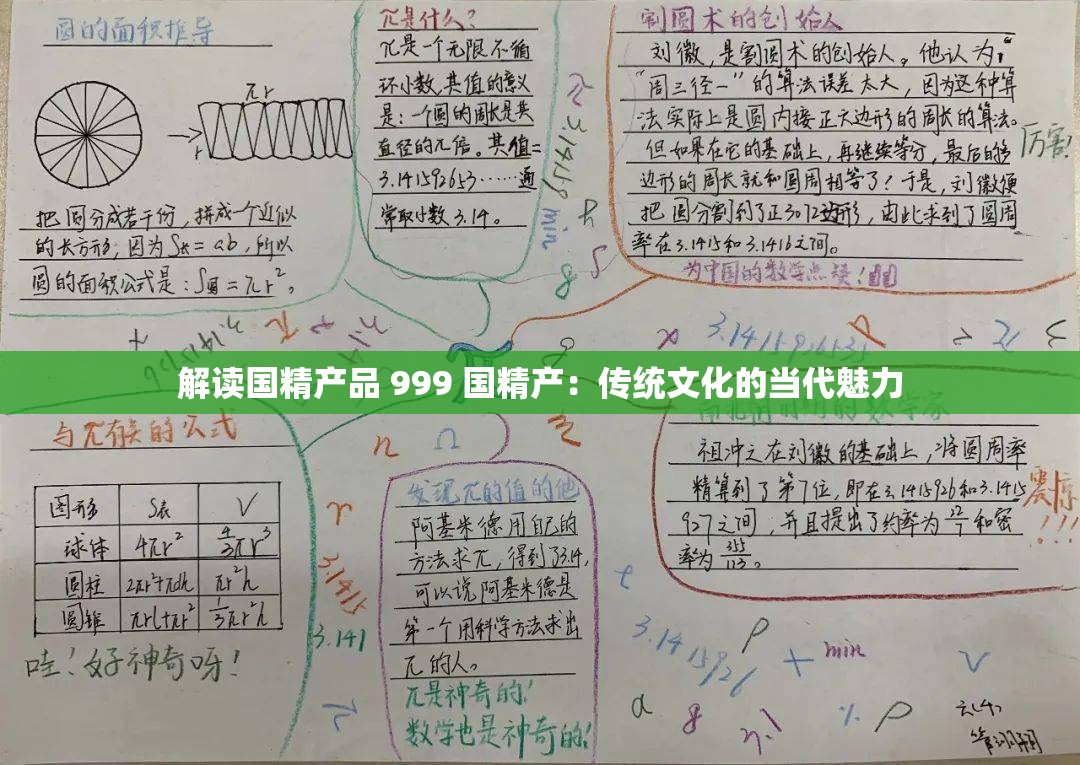 圆的面积推导
πr
r
把圆分成若干份,拼成一个近似
的长方形;因为S长=ab,所以
圆的面积公式是:S圆=πr²。
π是什么?
π是一个无限不循
环小数,其值的意义
是:一个圆的周长是其
直径的π倍。其值=
3.141592653……通
常取小数3.14。
割圆术的创始人
刘徽,是割圆术的创始人。他认为:
"周三径一"的算法误差太大,因为这种算
法实际上是圆内接正六边形的周长的算法。
但如果在它的基础上,再继续等分,最后的多
边形的周长就和圆周相等了!于是,刘徽便
把圆分割到了正3072边形,由此求到了圆周
率在3.1415和3.1416之间。
厉害!
为中国的数学点赞!
π 3.14159 min
3.1415926535
解读国精产品 999 国精产:传统文化的当代魅力
与π有关的公式
图形 S表 V
球体 4πr² 4/3πr³
圆柱 2πr²+πdh πr²h
圆锥 πrl+πr² 1/3πr²h
哇!好神奇呀!
3.1415
3.141
发现π的值的他
阿基米德用自己的
方法求π,得到了3.14,
可以说阿基米德是
第一个用科学方法求出
π的人。
π是神奇的!
数学也是神奇的!
祖冲之在刘徽的基础上,将圆周率
精算到了第7位,即在3.1415926和3.1415
927之间,并且提出了约率为22/7和密
率为355/113。
震惊!!!
3.1415926
ρ
+
min